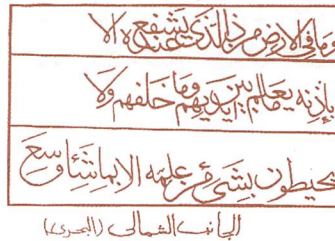 وما في الارض من ذا الذي يشفع عنده الا
باذنه يعلم ما بين ايديهم وما خلفهم ولا
يحيطون بشيء من علمه الا بما شاء وسع
الجانب الشمالى (البحرى)